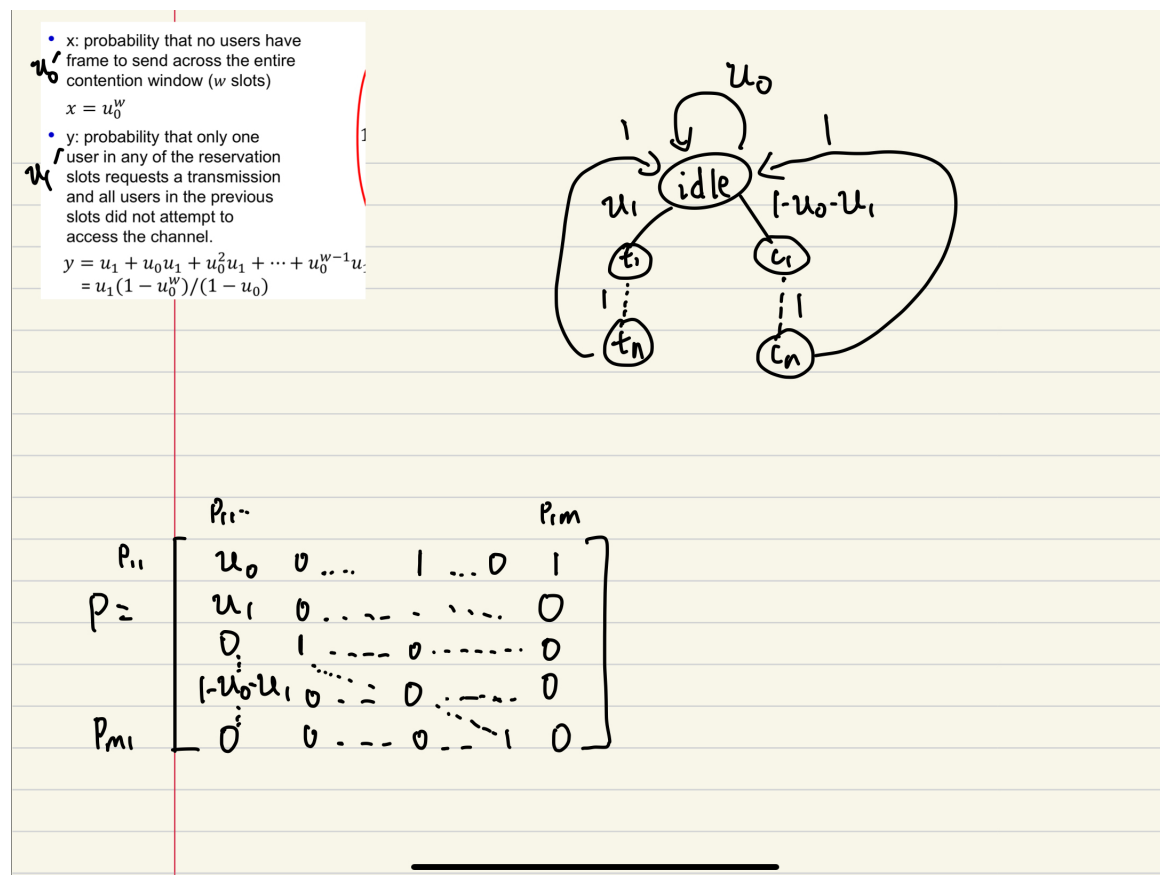 • x: probability that no users have
u₀′ frame to send across the entire
contention window (w slots)
x = u₀ʷ
• y: probability that only one
u₁′ user in any of the reservation
slots requests a transmission
and all users in the previous
slots did not attempt to
access the channel.
y = u₁ + u₀u₁ + u₀²u₁ + ⋯ + u₀ʷ⁻¹u₁
= u₁(1 − u₀ʷ)/(1 − u₀)
1
u₀
1
1
idle
u₁
1-u₀-u₁
t₁
c₁
1
1
tₙ
cₙ
P₁₁..
P₁m
P₁₁
u₀ 0 .... 1 ... 0 1
P =
u₁ 0 . . . . . . . 0
0 1 ---- 0 ....... 0
1-u₀-u₁ 0 - - 0 ----- 0
Pm₁
0 0 ---- 0 -- 1 0